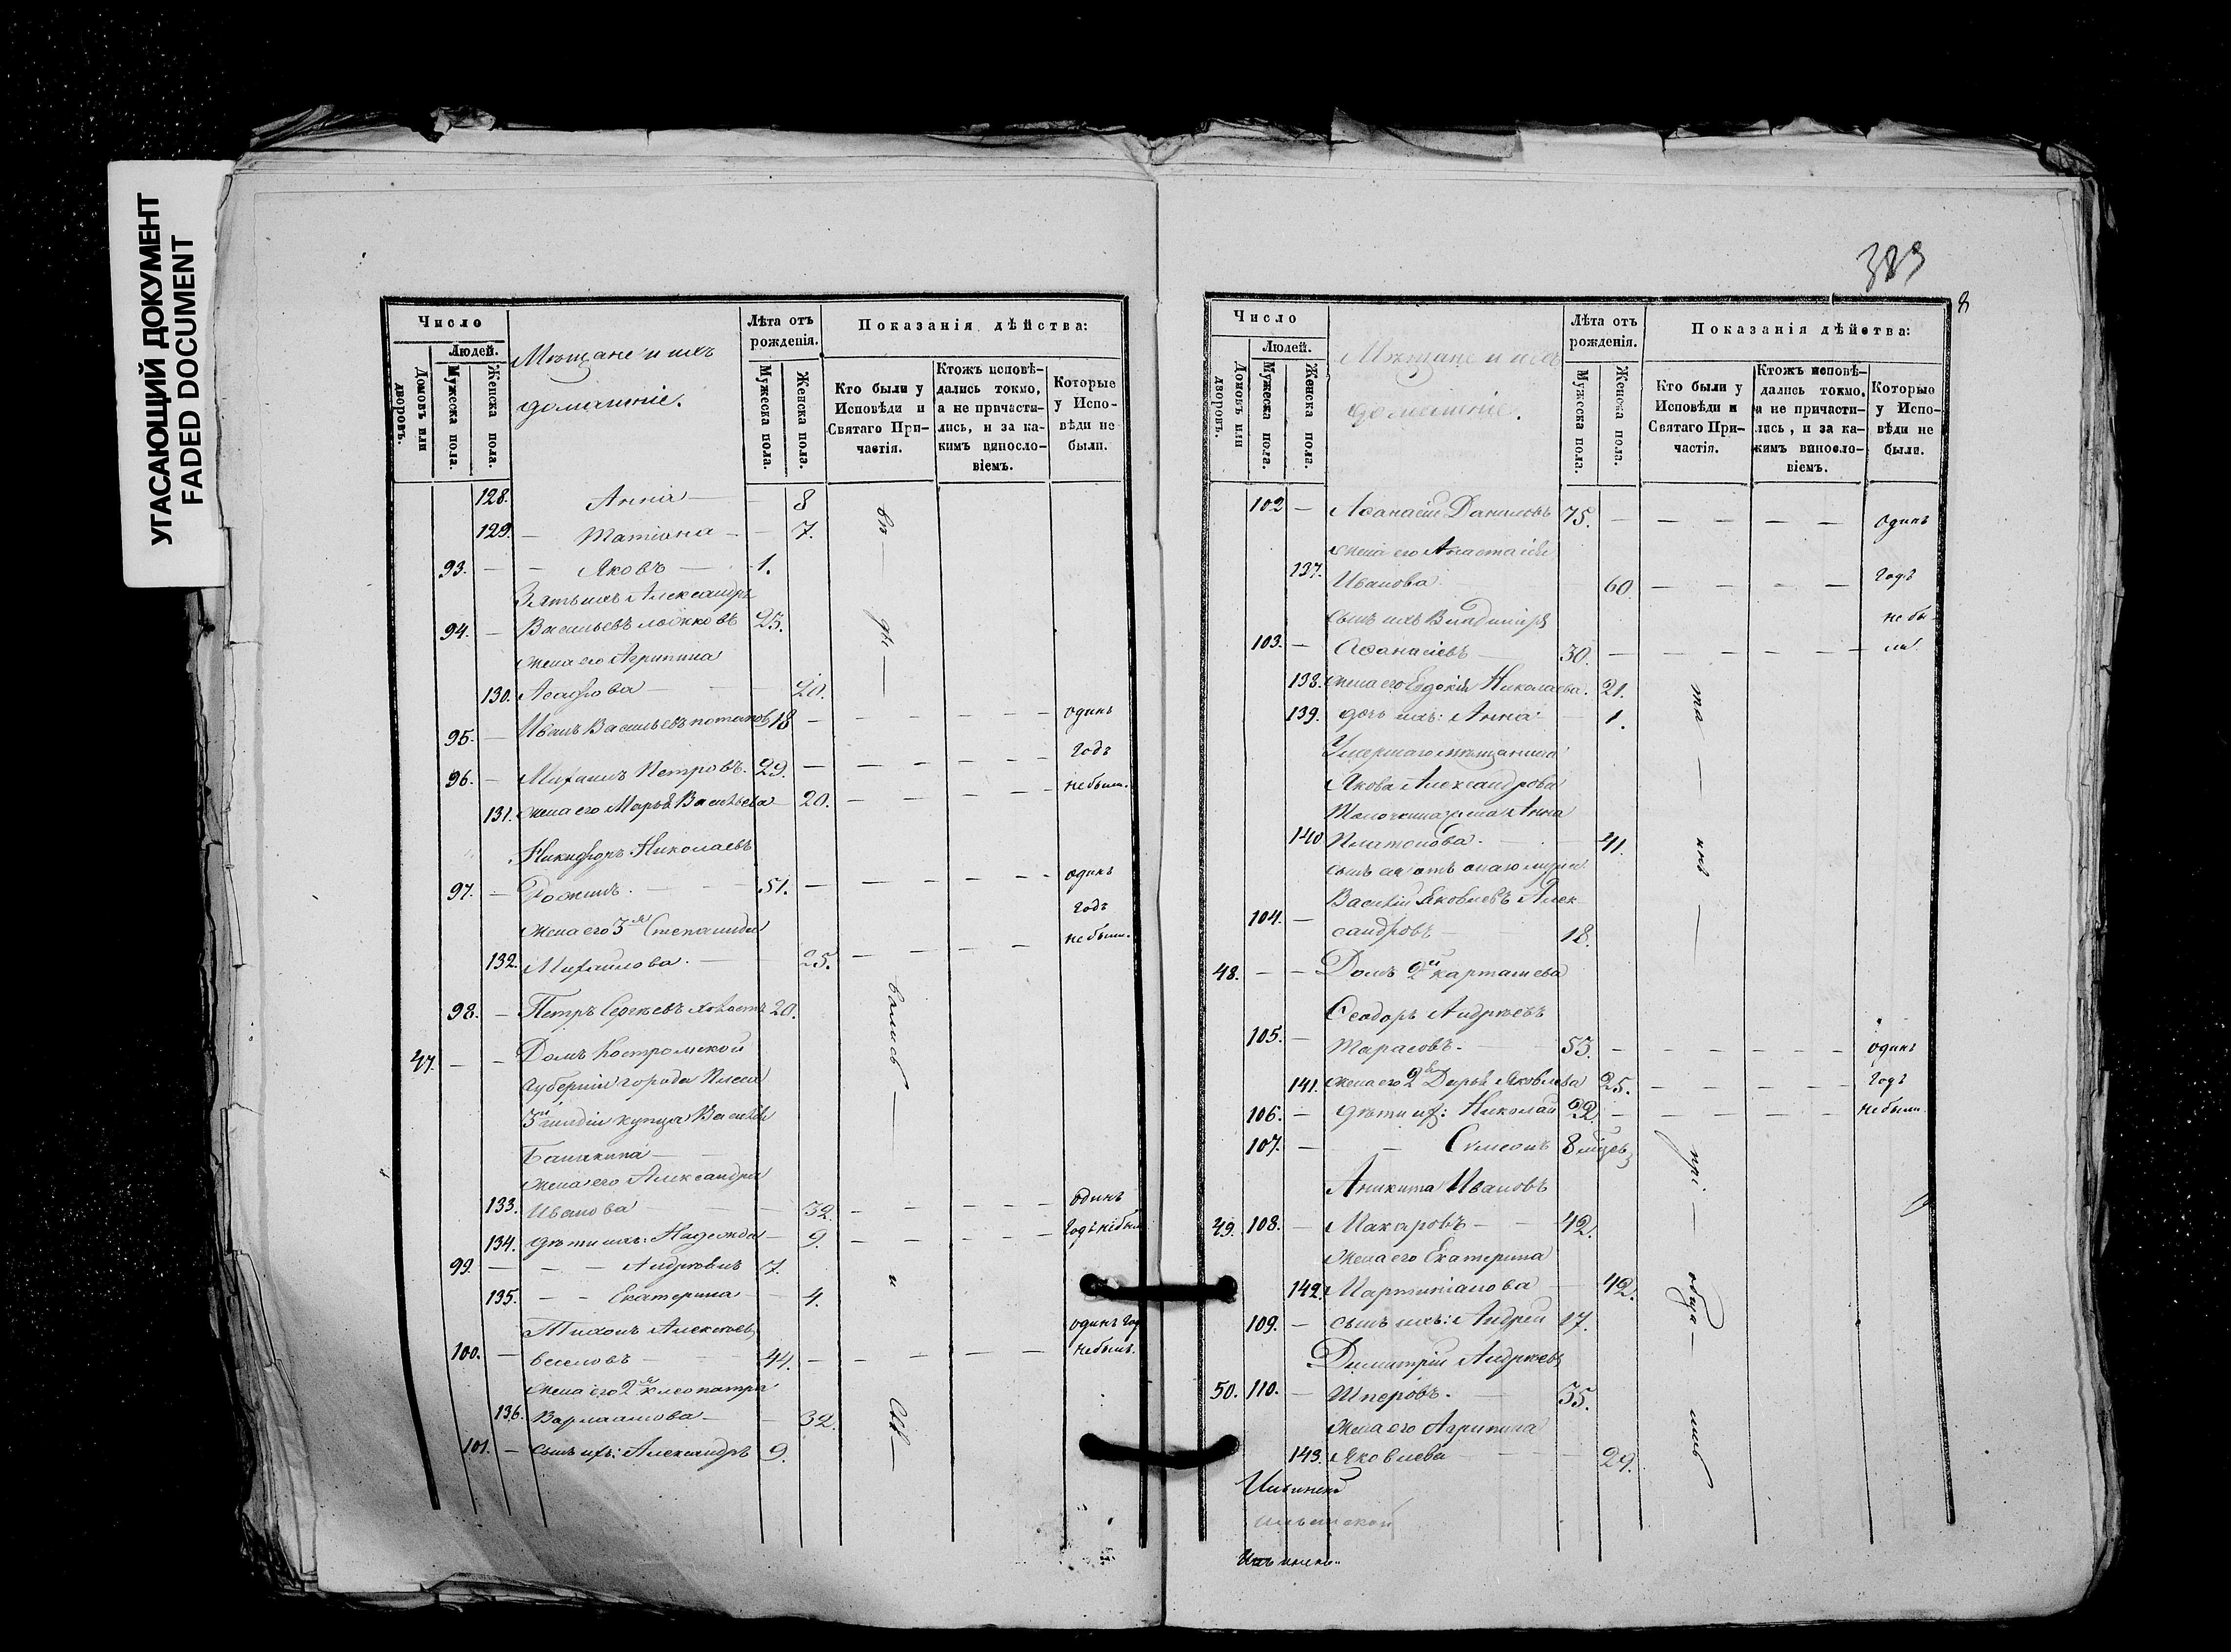 УГАСАЮЩИЙ ДОКУМЕНТ
FADED DOCUMENT
Число
Людей.
Домовъ или дворовъ.
Мужеска пола.
Женска пола.
Мѣщане и ихъ
домашніе.
Лѣта отъ рожденія.
Мужеска пола.
Женска пола.
Показанія дѣйства:
Кто были у Исповѣди и Святаго При-частія.
Ктожъ исповѣ-дались токмо, а не причасти-лись, и за ка-кимъ винословіемъ.
Которые у Испо-вѣди не были.
128. Анна — 8
129. — Татіана — 7.
93. — — Яковъ — 1.
Зять ихъ Александръ
94. — Васильевъ 25.
жена его Агрипина
130. 20.
95. — Иванъ Васильевъ 18 — — — — один
96. — Михаилъ Петровъ. 29. — — — — годъ
131. жена его Марья Васильева 20. — — — — не были.
Никифоръ Николаевъ
97. — 51. — — — — один
жена его 3я Степанида годъ
132. Михайлова. 25. — — — не были.
98. — Петръ Сергѣевъ 20.
47. — — Домъ Костромской
губерніи города Плеса
3й гильдіи купца Василія
жена его Александра
133. Иванова 32. — — — — одинъ
134. дѣти ихъ: Надежда — 9. — — — — годъ не был
99. — — — Андрей 7.
135. — — Екатерина — 4.
Тихонъ Алексѣевъ одинъ год
100. — Веселовъ 44. — — — — не былъ.
жена его 2я Клеопатра
136. Варлаамова — 32.
101. — сынъ ихъ: Александръ 9.
389
Число
Людей.
Домовъ или дворовъ.
Мужеска пола.
Женска пола.
Мѣщане и ихъ
домашніе.
Лѣта отъ рожденія.
Мужеска пола.
Женска пола.
Показанія дѣйства:
Кто были у Исповѣди и Святаго При-частія.
Ктожъ исповѣ-дались токмо, а не причасти-лись, и за ка-кимъ винословіемъ.
Которые у Испо-вѣди не были.
102 — Аѳанасій Даниловъ 75. — — — — — одинъ
жена его Анастасія
137. Иванова 60. — — — — годъ
сынъ ихъ Владиміръ не бы-
103. — Аѳанасіевъ 30. — — — — — ли.
138. жена его Евдокія Николаева. 21.
139. дочь ихъ: Анна 1.
Умершаго мѣщанина
Якова Александрова
жена Анна
140 Платонова. 41.
сынъ ея отъ онаго мужа
Василій Яковлевъ Алек-
104. — сандровъ 18.
48. — — Домъ 2й Карташева
Ѳеодоръ Андрѣевъ
105. — Тарасовъ. 53. — — — — — одинъ
141. жена его 2я Дарья Яковлева 25. — — — — — годъ
106. — дѣти их: Николай 22. — — — — — не были.
107. — — Симеонъ 8 мѣцевъ
Аникита Ивановъ
49. 108. — Макаровъ — 42.
жена его Екатерина
142. Мартиніанова 42.
109. — сынъ ихъ: Андрей 17.
Димитрій Андрѣевъ
50. 110. — Шперовъ. 35.
жена его Агрипина
143. Яковлева 29.